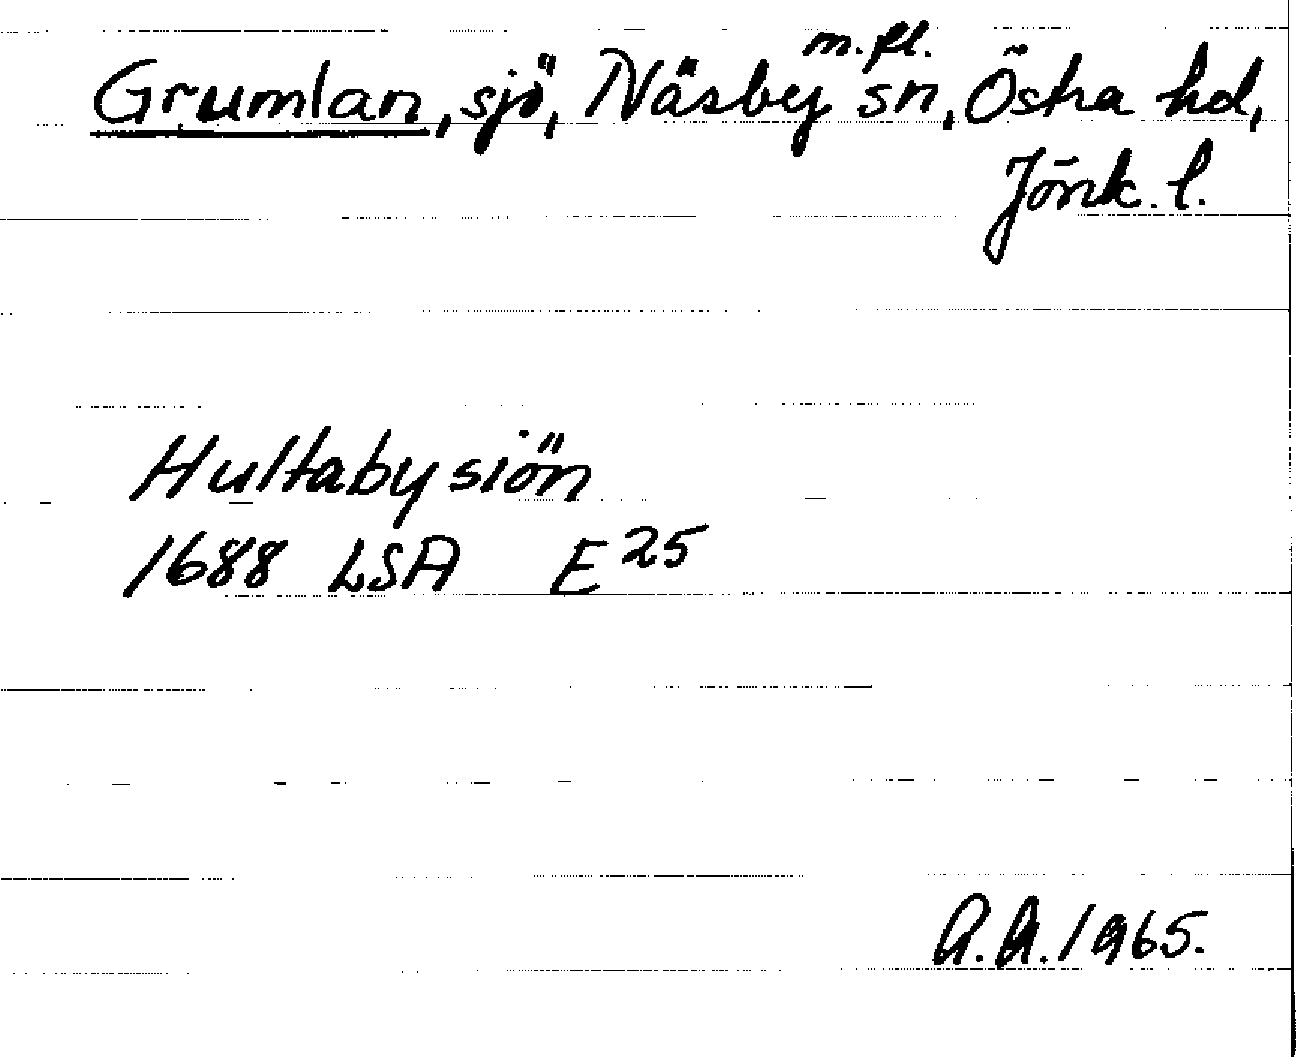 Grumlan, sjö, Näsby m.fl. sn, Östra hd,
Jönk. l.
Hultaby siön
1688 LSA E25
A.A. 1965.